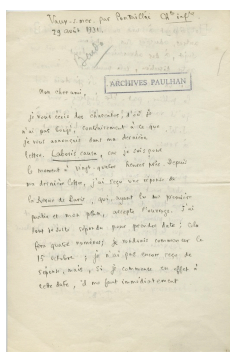 Vaux-s-mer, par Pontaillac Ch^te inf^re
29 août 193
ARCHIVES PAULHAN
Mon cher ami,
je vous écris des Charentes, d'où je
n'ai pas bougé, contrairement à ce que
je vous annonçais dans ma dernière
lettre, Laboris causa, car je suis pour
le moment à vingt-quatre heures près. Depuis
ma dernière lettre, j'ai reçu une réponse de
la Revue de Paris, qui, ayant lu ma première
partie et mon plan, accepte l'ouvrage. J'ai
tout de suite répondu pour prendre date : cela
fera quatre numéros. Je voudrais commencer le
15 octobre ; je n'ai pas encore reçu de
réponse, mais, si je commence en effet à
cette date, il me faut immédiatement